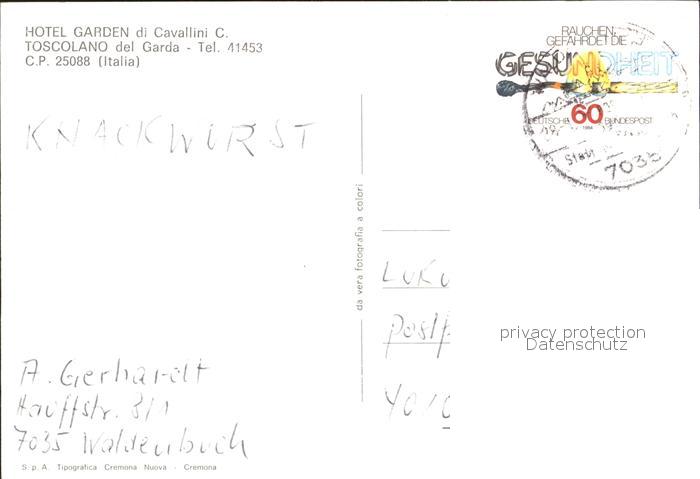 HOTEL GARDEN di Cavallini C.
TOSCOLANO del Garda - Tel. 41453
C.P. 25088 (Italia)
RAUCHEN
GEFÄHRDET DIE
GESUNDHEIT
60
DEUTSCHE BUNDESPOST
1984
7035
KNACKWURST
da vera fotografia a colori
privacy protection
Datenschutz
A. Gerhardt
Hauffstr. 3/1
7035 Waldenbuch
S. p. A. Tipografica Cremona Nuova - Cremona